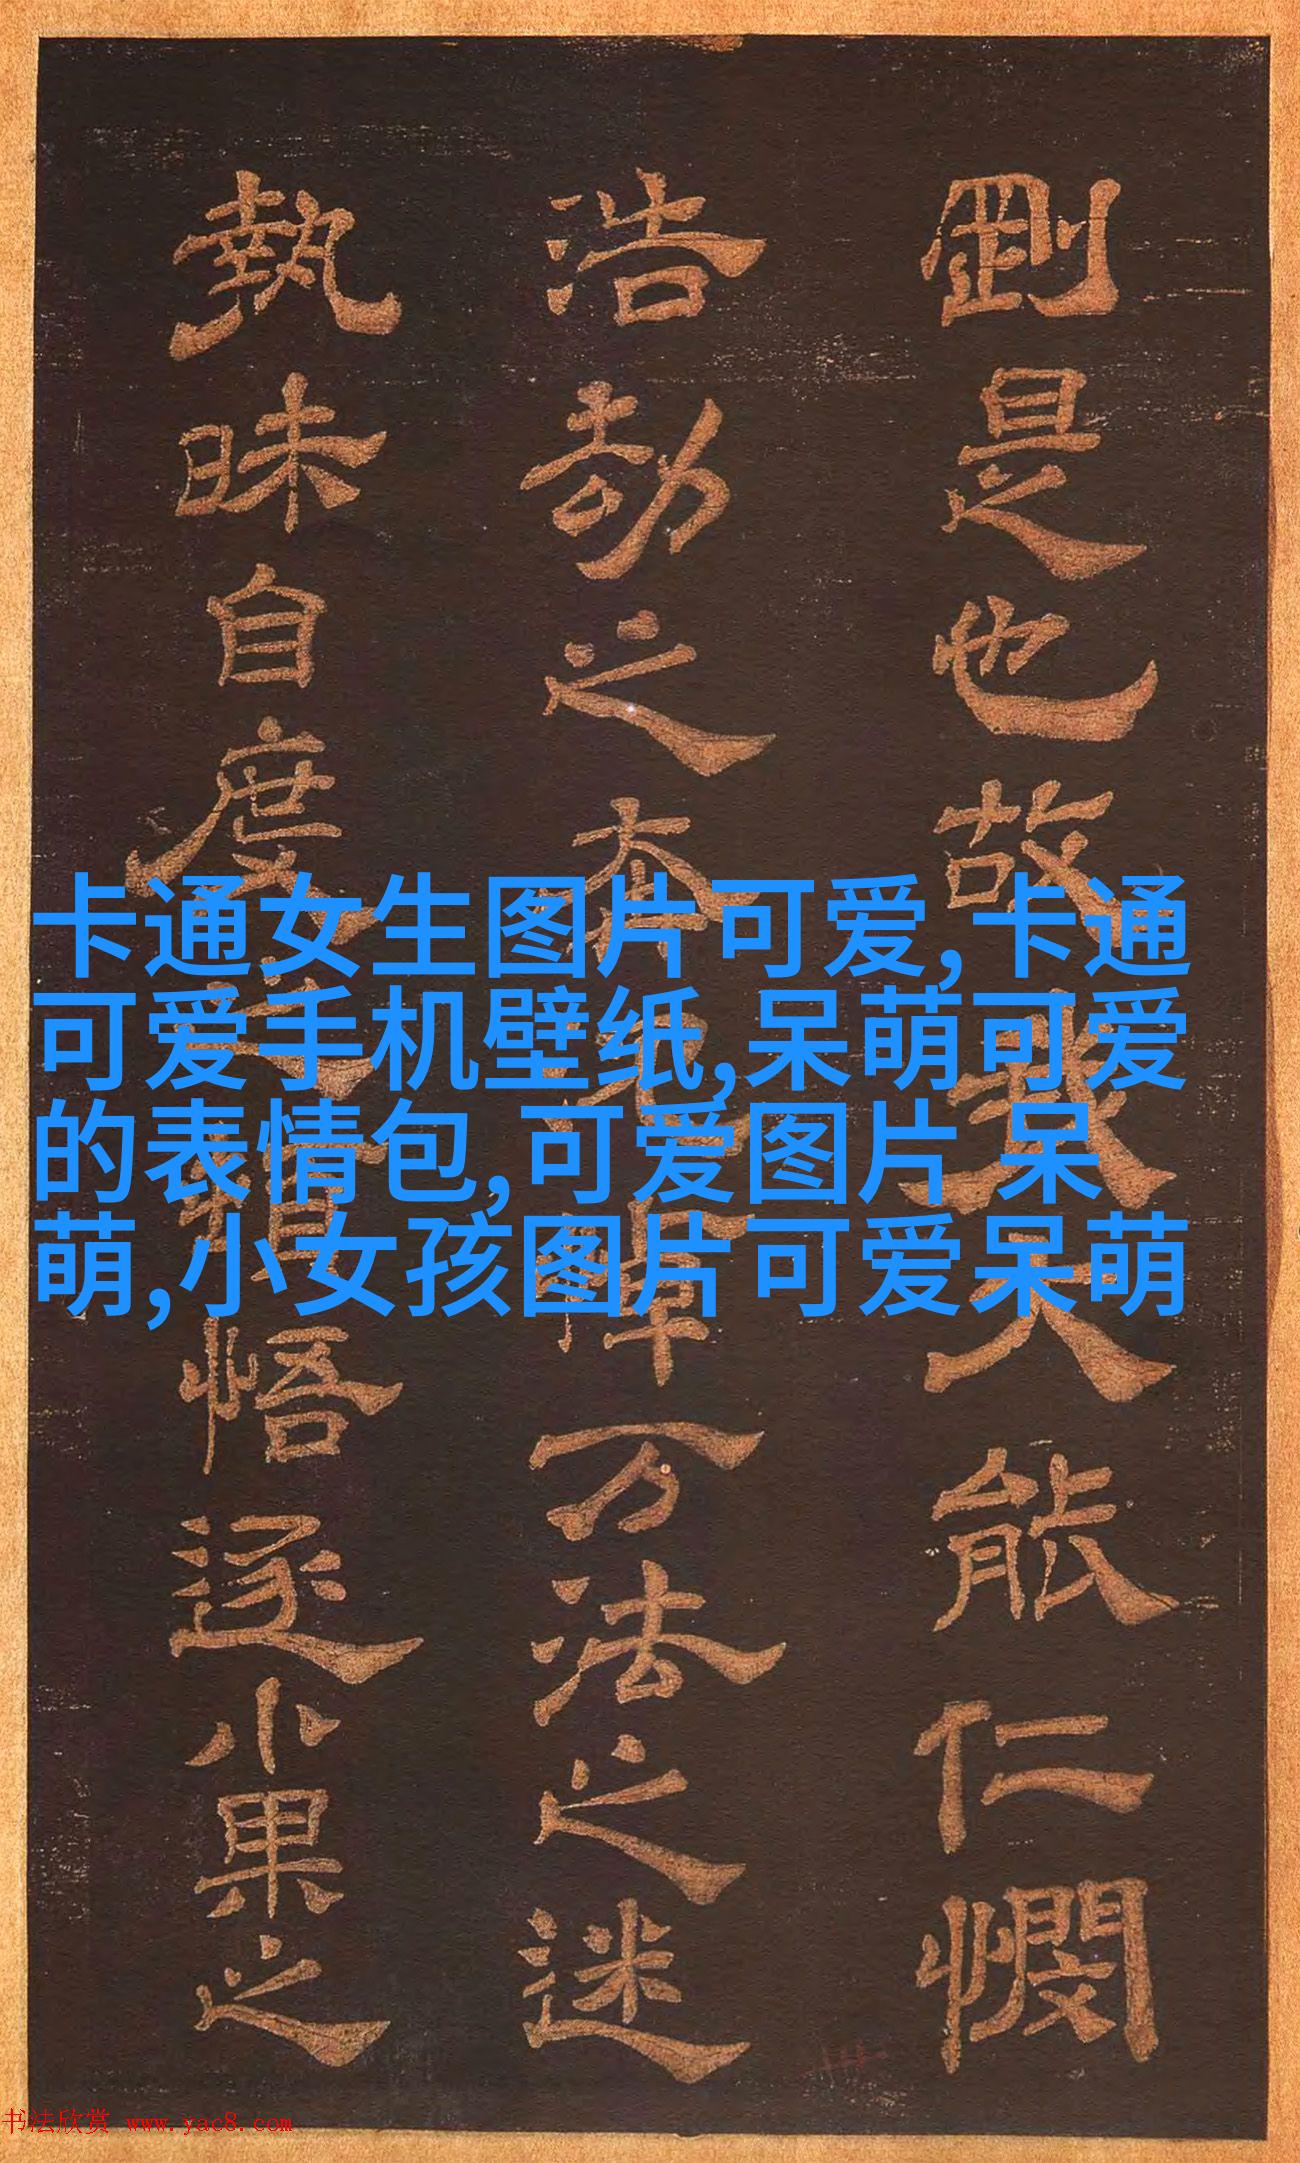 剛是也故我大能仁憫
浩劫之悼万法之迷
執昧自度之悟逐小果之
卡通女生图片可爱,卡通
可爱手机壁纸,呆萌可爱
的表情包,可爱图片 呆
萌,小女孩图片可爱呆萌
书法欣赏 www.yac8.com